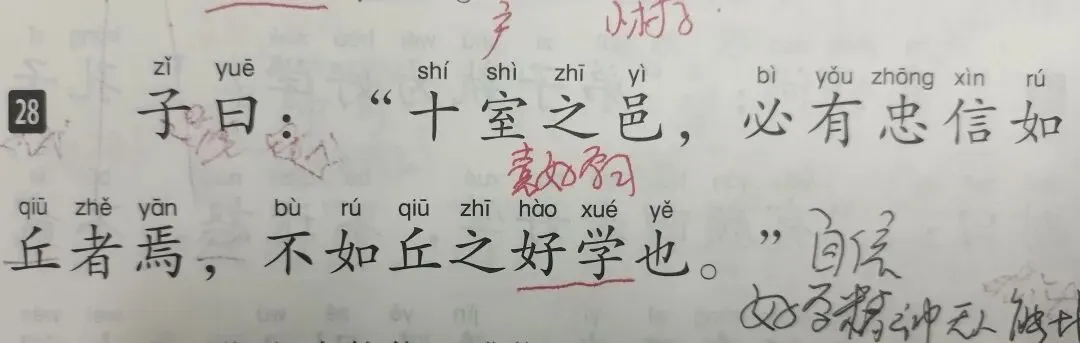 户 小村子
zǐ yuē shí shì zhī yì bì yǒu zhōng xìn rú
28 子曰：“十室之邑，必有忠信如
喜好学习
qiū zhě yān bù rú qiū zhī hào xué yě
丘者焉，不如丘之好学也。” 自信
好学精神无人能比